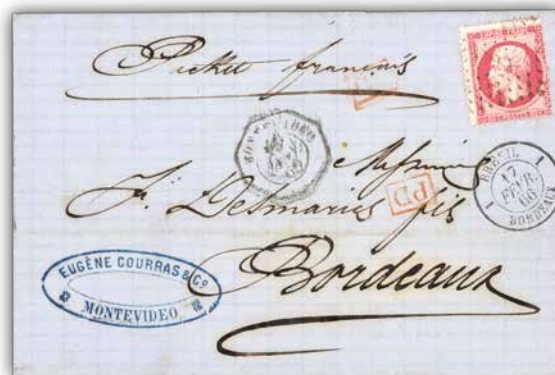 Packet français
EMPIRE FRANC
MONTEVIDEO
Messieurs
BRESIL 1
17
FEVR.
66
1 BORDEAUX
PD
J. Delmaries fils
Bordeaux
EUGÈNE COURRAS & Cº
MONTEVIDEO